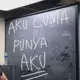 AKU CUMA
PUNYA
AKU